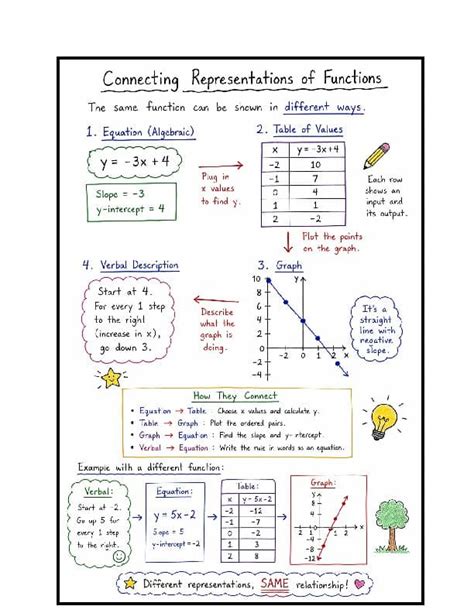 Connecting Representations of Functions
The same function can be snown in different ways.
1. Equation (Algebraic)
y = -3x + 4
Slope = -3
y-intercept = 4
Plug in
x values
to find y.
2. Table of Values
x y = -3x+4
-2 10
-1 7
0 4
1 1
2 -2
Each row
shows an
input and
its output.
Plot the points
on the graph.
4. Verbal Description
Start at 4.
For every 1 step
to the right
(increase in x),
go down 3.
Describe
what the
graph is
doing.
3. Graph
10
8
6
4
2
0
-2
-4
-2 0 1 2 x
It's a
straight
line with
neoative
slope.
How They Connect
• Equation → Table : Choose x values and calculate y.
• Table → Graph : Plot the ordered pairs.
• Graph → Equation : Find the slope and y- rtercept.
• Verbal → Equation : Write the rule in words so an equation.
Exampie with a different function:
Verbal:
Start at -2.
Go up 5 for
every 1 step
to the right.
Equation:
y = 5x-2
Slope = 5
y-intercept = -2
Table:
x y = 5x-2
-2 -12
-1 -7
0 -2
1 3
2 8
Graph:
y
8
4
-2 2 x
-8
-12
Different representations, SAME relationship!